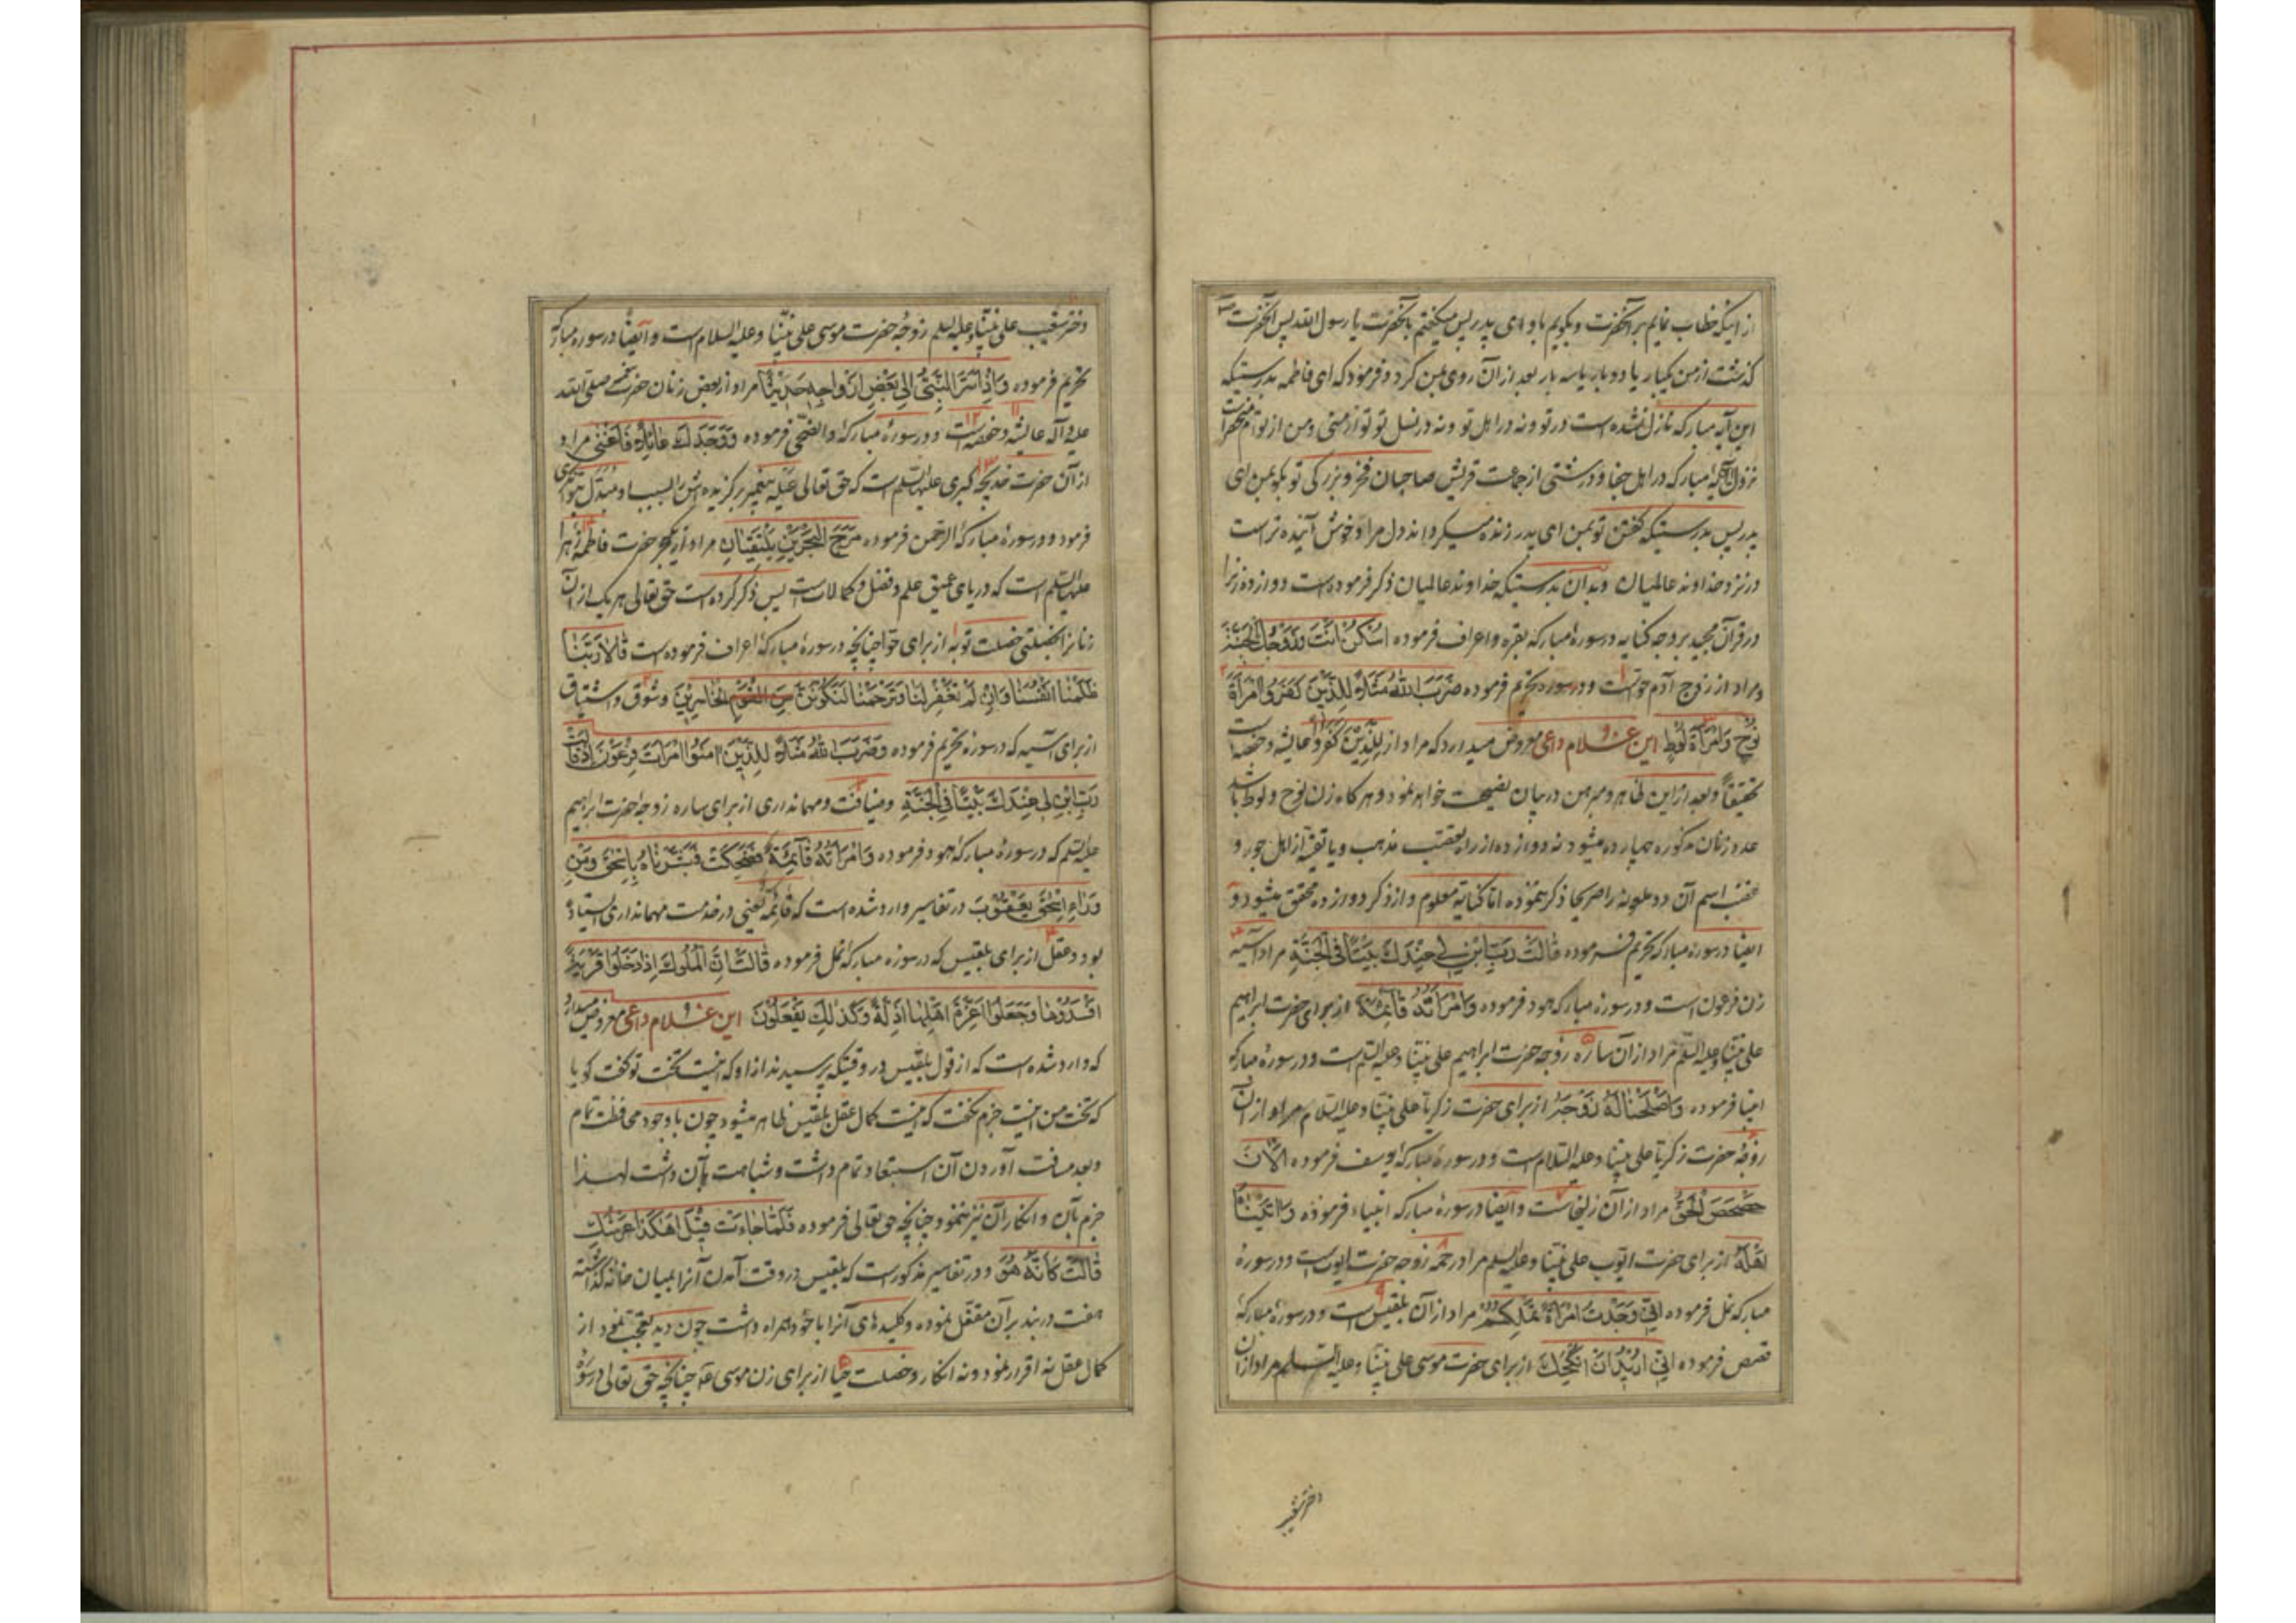 از اینکه خطاب نمایم بر آنحضرت و بگویم باو ای پدر پس میگفتم بآنحضرت یا رسول الله پس آنحضرت
گذشت از من یکبار یا دو بار یا سه بار بعد از آن روی بمن کرد و فرمود که ای فاطمه بدرستیکه
این آیه مبارکه نازل نشده است در تو و نه در اهل تو و نه در نسل تو تو از منی و من از توام
نزول آیه مبارکه در اهل جفا و درشتی از جماعت قریش صاحبان فخر و بزرگی تو بگو بمن ای
پدر پس بدرستیکه گفتن تو بمن ای پدر زنده میگرداند دل مرا و خوش آینده تر است
در نزد خداوند عالمیان و بدان بدرستیکه خداوند عالمیان ذکر فرموده است دوازده زنرا
در قرآن مجید بر وجه کنایه در سورهٔ مبارکه بقره و اعراف فرموده اسْکُنْ اَنْتَ وَزَوْجُکَ الْجَنَّةَ
و مراد از زوج آدم حوّا است و در سوره تحریم فرموده ضَرَبَ اللهُ مَثَلاً لِلَّذِینَ کَفَرُوا امْرَأَةَ
نُوحٍ وَامْرَأَةَ لُوطٍ این غلام داعی معروض میدارد که مراد از لِلَّذِینَ کَفَرُوا عایشه و حفصه است
تحقیقاً و بعد از این ظاهر و مبرهن در بیان نصیحت خواهد نمود و هر گاه زن نوح و لوط باشد
عدد زنان مذکوره چهارده میشود نه دوازده از راه تعصّب مذهب و یا تقیّه از اهل جور و
غضب اسم آن دو ملعونه را صریحا ذکر ننموده اما کنایة معلوم و از ذکر دوازده محقق میشود و
ایضا در سورهٔ مبارکه تحریم فرموده قَالَتْ رَبِّ ابْنِ لِی عِنْدَکَ بَیْتًا فِی الْجَنَّةِ مراد آسیه
زن فرعون است و در سورهٔ مبارکه هود فرموده وَامْرَأَتُهُ قَائِمَةٌ از برای حضرت ابراهیم
علی نبیّنا و علیه السلم مراد از آن ساره زوجه حضرت ابراهیم علی نبیّنا و علیه السلم است و در سورهٔ مبارکه
انبیا فرموده وَاَصْلَحْنَا لَهُ زَوْجَهُ از برای حضرت زکریّا علی نبیّنا و علیه السلام مراد از آن
زوجهٔ حضرت زکریّا علی نبیّنا و علیه السّلام است و در سورهٔ مبارکهٔ یوسف فرموده اَلْآنَ
حَصْحَصَ الْحَقُّ مراد از آن زلیخا است و ایضا در سورهٔ مبارکه انبیاء فرموده وَآتَیْنَاهُ
اَهْلَهُ از برای حضرت ایّوب علی نبیّنا و علیه السلم مراد رحمه زوجه حضرت ایوب است و در سورهٔ
مبارکه نمل فرموده اِنِّی وَجَدْتُ امْرَأَةً تَمْلِکُهُمْ مراد از آن بلقیس است و در سورهٔ مبارکهٔ
قصص فرموده اِنِّی اُرِیدُ اَنْ اُنْکِحَکَ از برای حضرت موسی علی نبیّنا و علیه السلم مراد از آن
دختر شعیب
دختر شعیب علی نبیّنا و علیه السلم زوجهٔ حضرت موسی علی نبیّنا و علیه السلام است و ایضاً در سوره مبارکه
تحریم فرموده وَاِذْ اَسَرَّ النَّبِیُّ اِلی بَعْضِ اَزْوَاجِهِ حَدِیثًا مراد از بعض زنان حضرت صلی الله
علیه و آله عایشه و حفصه است و در سورهٔ مبارکهٔ والضحی فرموده وَوَجَدَکَ عَائِلاً فَاَغْنی مراد
از آن حضرت خدیجهٔ کبری علیها السلم است که حق تعالی
فرمود و در سورهٔ مبارکهٔ الرّحمن فرموده مَرَجَ الْبَحْرَیْنِ یَلْتَقِیَانِ مراد از یکبحر حضرت فاطمهٔ زهرا
علیها السلم است که دریای عمیق علم و فضل و کمالات است پس ذکر کرده است حق تعالی هر یک از آن
زنانرا بخصلتی خصلت توبه از برای حوّا چنانچه در سورهٔ مبارکهٔ اعراف فرموده است قَالَا رَبَّنَا
ظَلَمْنَا اَنْفُسَنَا وَاِنْ لَمْ تَغْفِرْ لَنَا وَتَرْحَمْنَا لَنَکُونَنَّ مِنَ القوم الْخَاسِرِینَ و شوق و اشتیاق
از برای آسیه که در سورهٔ تحریم فرموده وَضَرَبَ اللهُ مَثَلاً لِلَّذِینَ آمَنُوا امْرَأَتَ فِرْعَوْنَ اِذْ قَالَتْ
رَبِّ ابْنِ لِی عِنْدَکَ بَیْتًا فِی الْجَنَّةِ و ضیافت و مهمانداری از برای ساره زوجه حضرت ابراهیم
علیه السلم که در سورهٔ مبارکهٔ هود فرموده وَامْرَأَتُهُ قَائِمَةٌ فَضَحِکَتْ فَبَشَّرْنَاهُ بِاِسْحٰقَ وَمِنْ
وَرَاءِ اِسْحٰقَ یَعْقُوبَ در تفاسیر وارد شده است که قائمة یعنی در خدمت مهمانداری ایستاده
بود و عقل از برای بلقیس که در سوره مبارکهٔ نمل فرموده قَالَتْ اِنَّ الْمُلُوکَ اِذَا دَخَلُوا قَرْیَةً
اَفْسَدُوهَا وَجَعَلُوا اَعِزَّةَ اَهْلِهَا اَذِلَّةً وَکَذٰلِکَ یَفْعَلُونَ این غلام داعی معروض میدارد
که وارد شده است که از قول بلقیس در وقتیکه پرسیدند از او که اینست تخت تو گفت گویا
که تخت من اینست جزم نگفت که اینست کمال عقل بلقیس ظاهر میشود چون با وجود محافظت تمام
و بعد مسافت آوردن آن استبعاد تمام داشت و شباهت بآن داشت لهذا
جزم بآن و انکار آن نیز ننمود چنانچه حق تعالی فرموده فَلَمَّا جَاءَتْ قِیلَ اَهٰکَذَا عَرْشُکِ
قَالَتْ کَاَنَّهُ هُوَ و در تفاسیر مذکور است که بلقیس در وقت آمدن آنرا بمیان خانه گذاشته
هفت در بند بر آن مقفّل نموده و کلیدهای آنرا با خود همراه داشت چون دید تعجب نمود از
کمال عقل نه اقرار نمود و نه انکار و خصلت حیا از برای زن موسی ع چنانچه حق تعالی در سوره